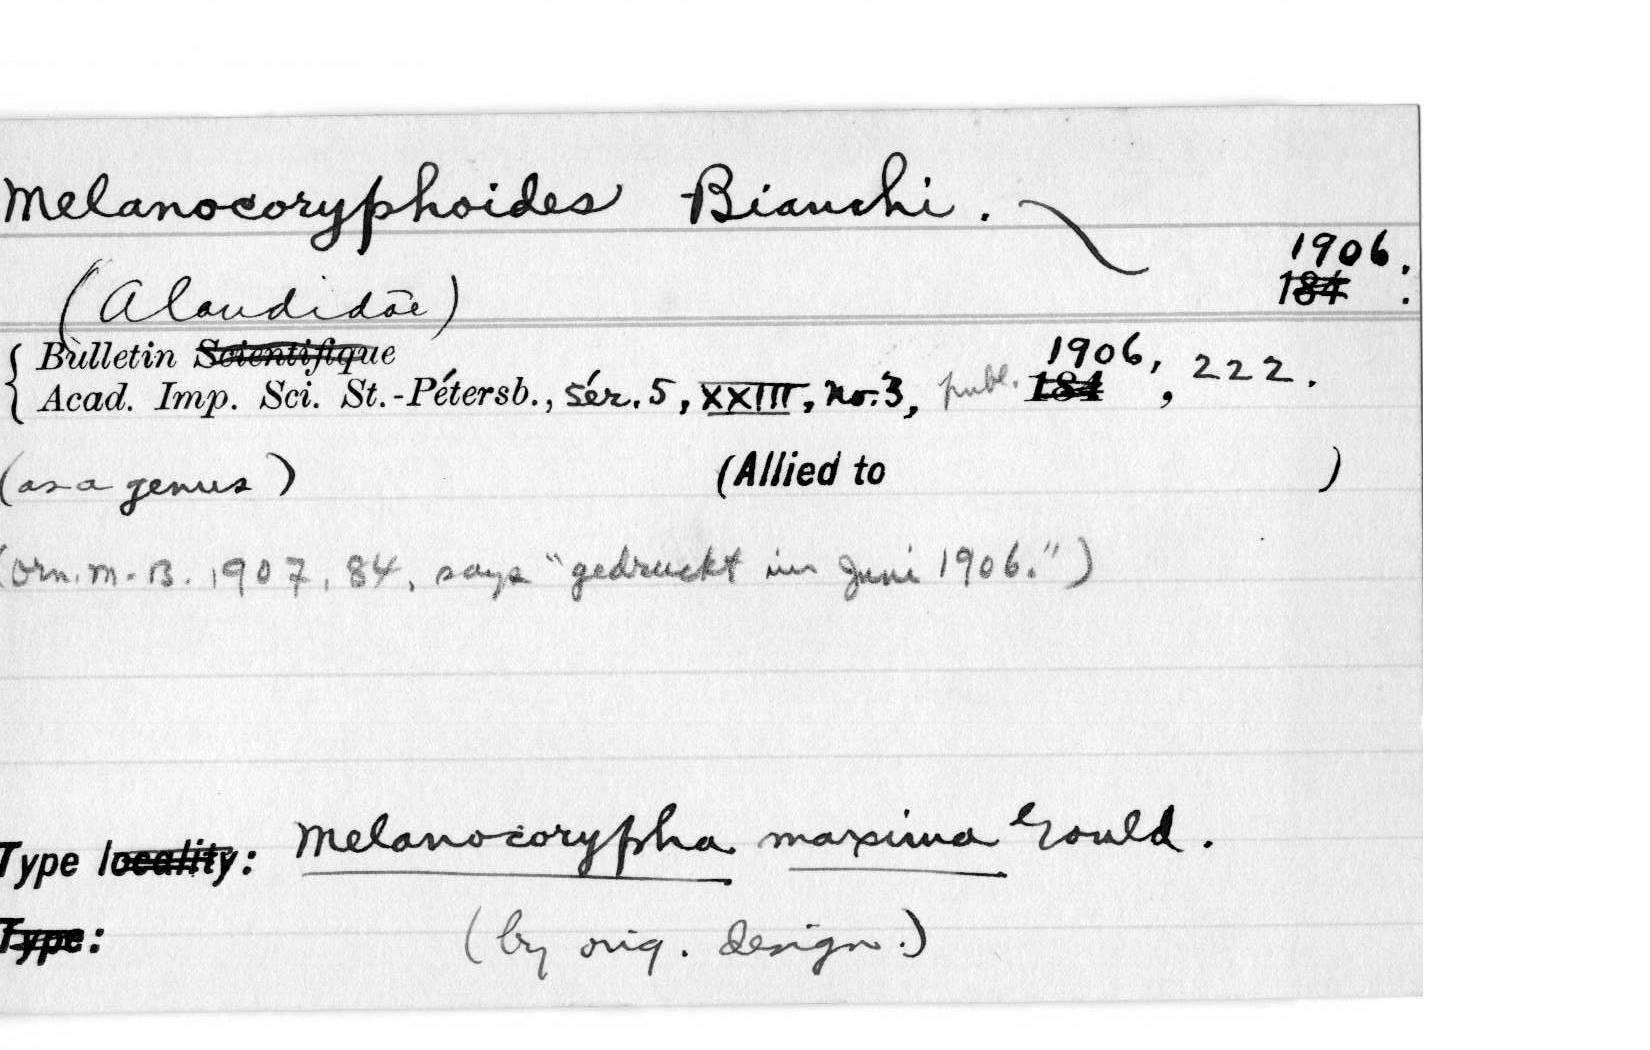 Melanocoryphoides Bianchi.
1906.
184.
(Alaudidae)
Bulletin Scientifique
Acad. Imp. Sci. St.-Pétersb., sér. 5, XXIII, no. 3, publ. 1906, 184, 222.
(as a genus) (Allied to )
(Orn. M.-B. 1907, 84, says "gedruckt im Juni 1906.")
Type locality: Melanocorypha maxima Gould.
Type: (by orig. design.)